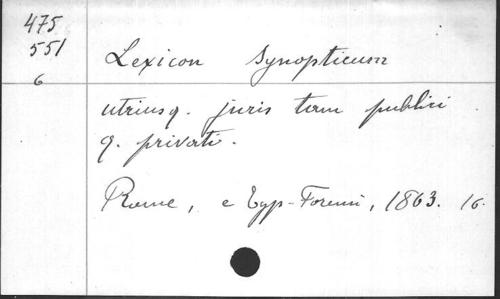 475
551
6
Lexicon Synopticum
utriusq. juris tam publici
q. privati.
Rome, e Typ. Forensi, 1863. 16.